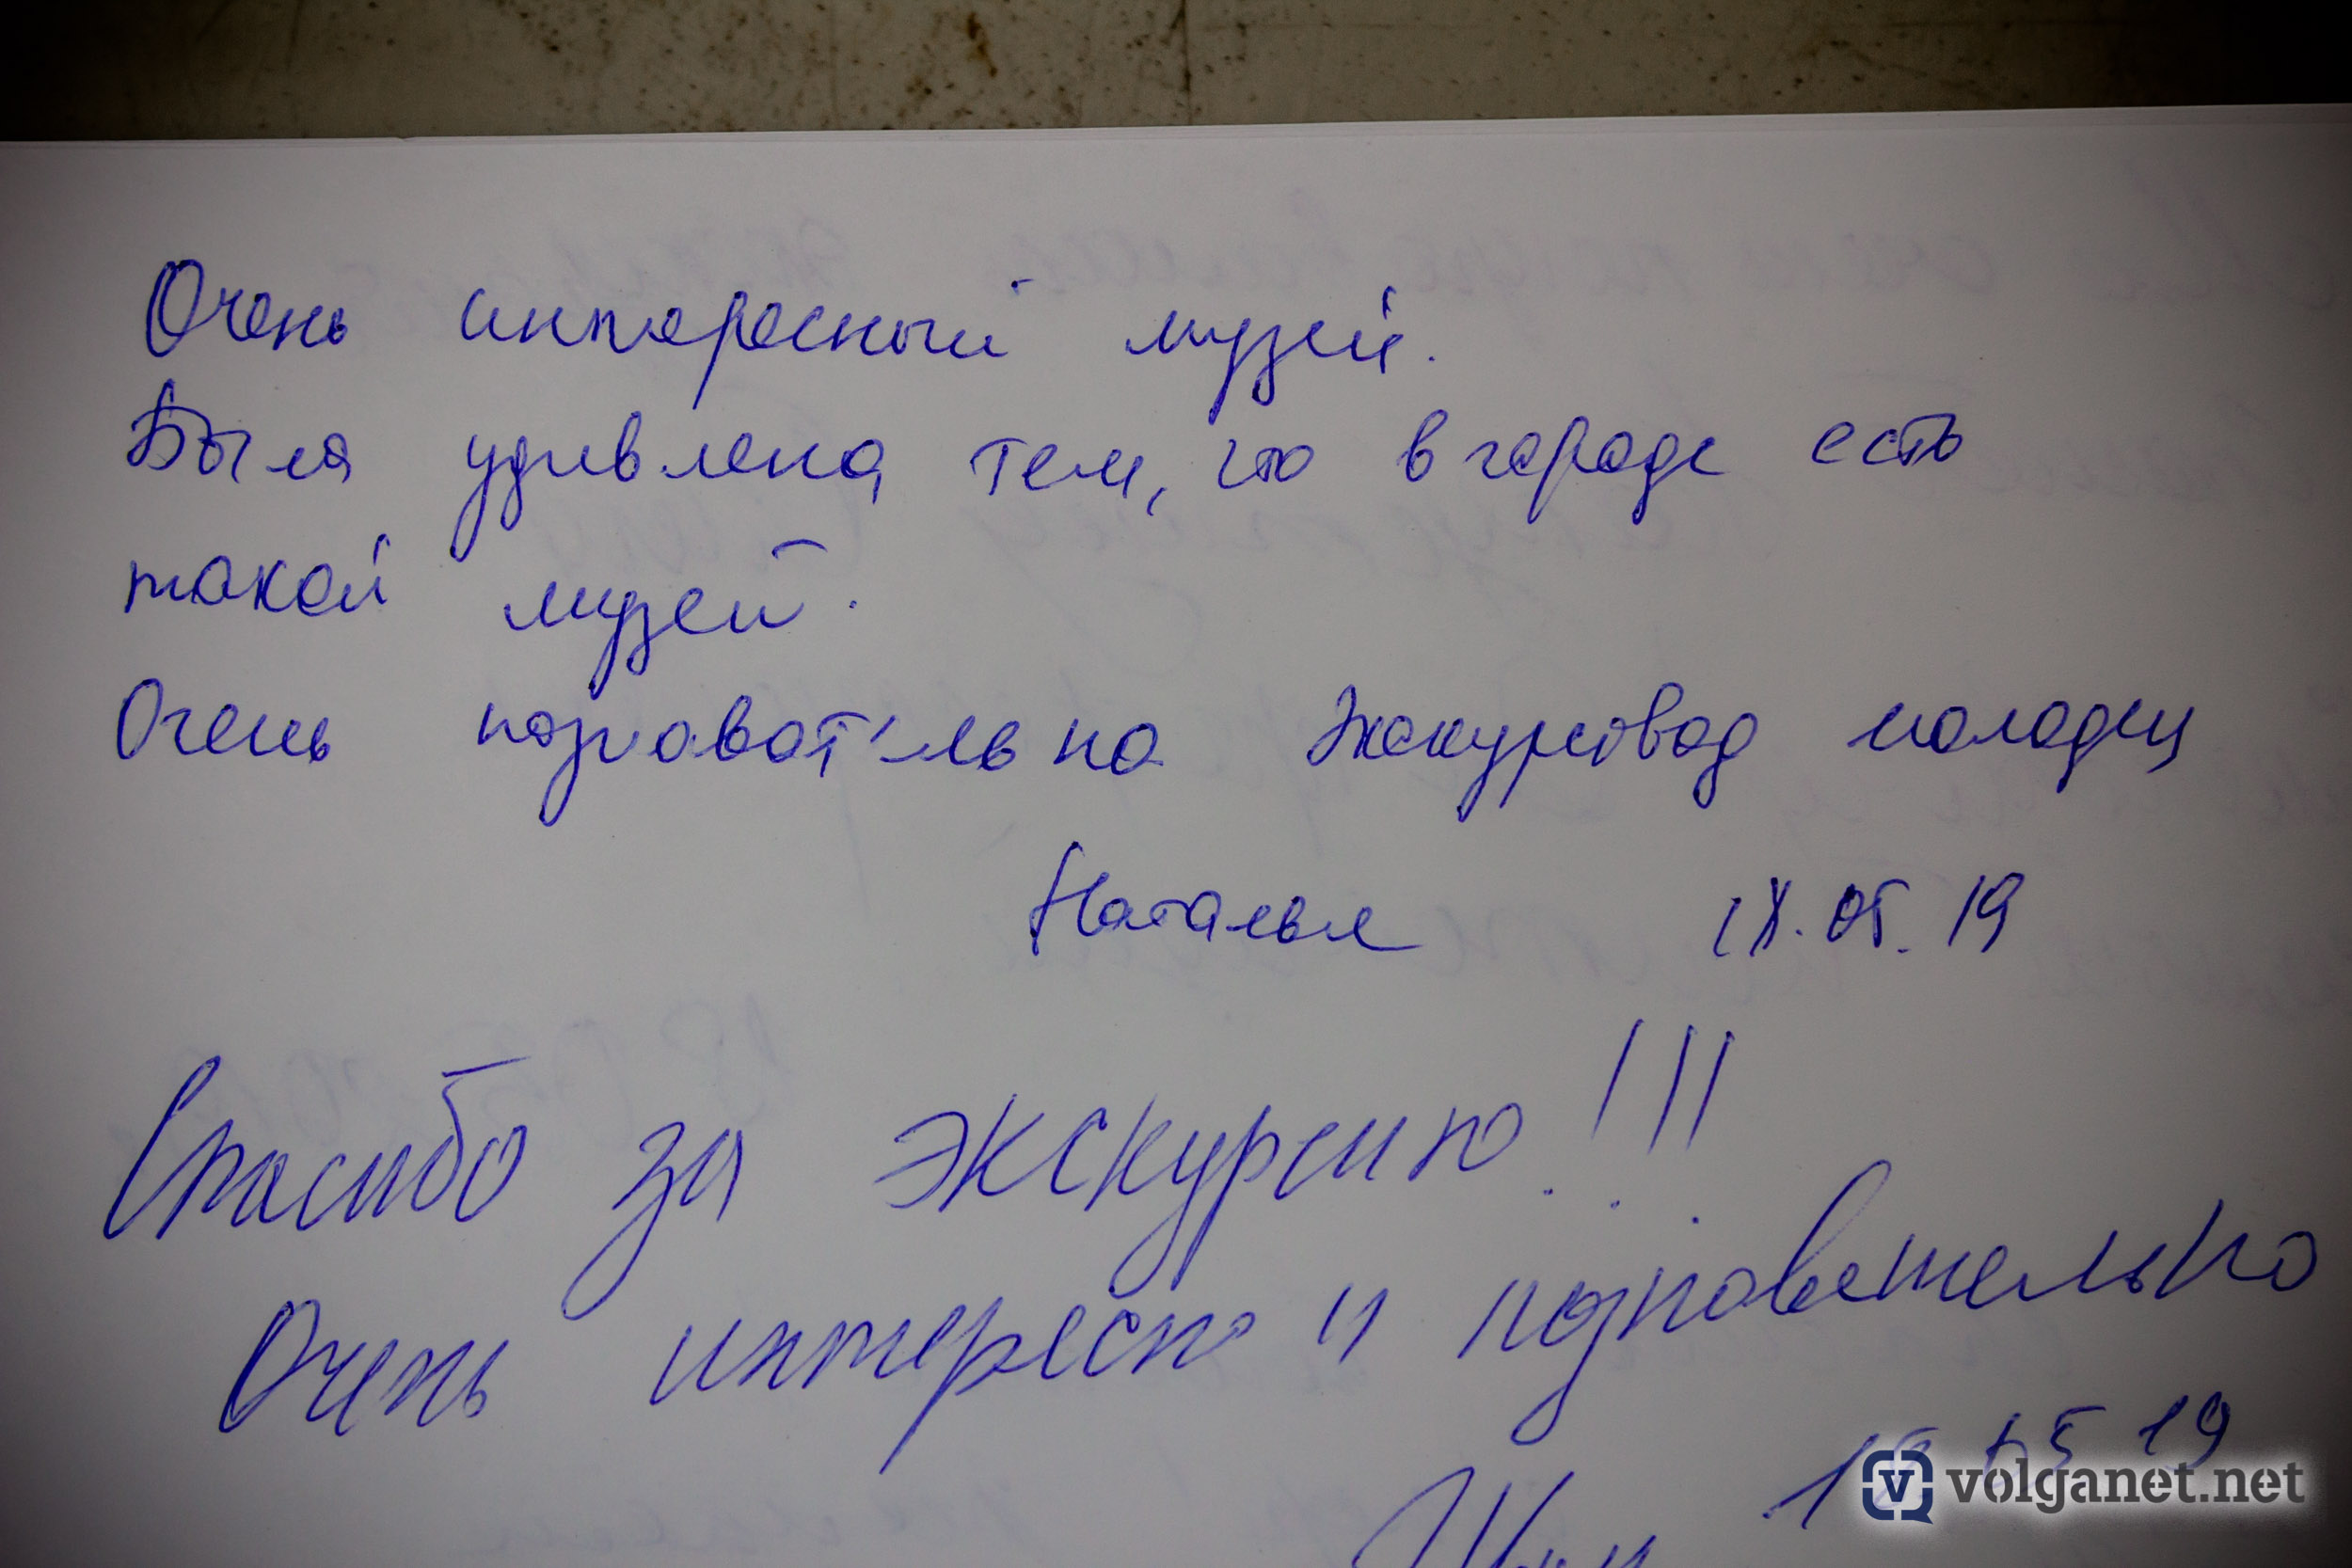 Очень интересный музей.
Была удивлена тем, что в городе есть
такой музей.
Очень познавательно Экскурсовод молодец
Наталья 18.05.19
Спасибо за экскурсию!!!
Очень интересно и познавательно
18 05 19
volganet.net